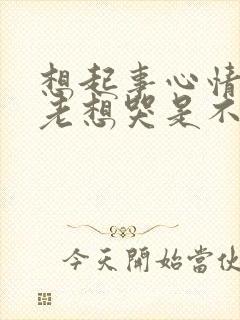 想起事心情
老想哭是不
今天開始當伙